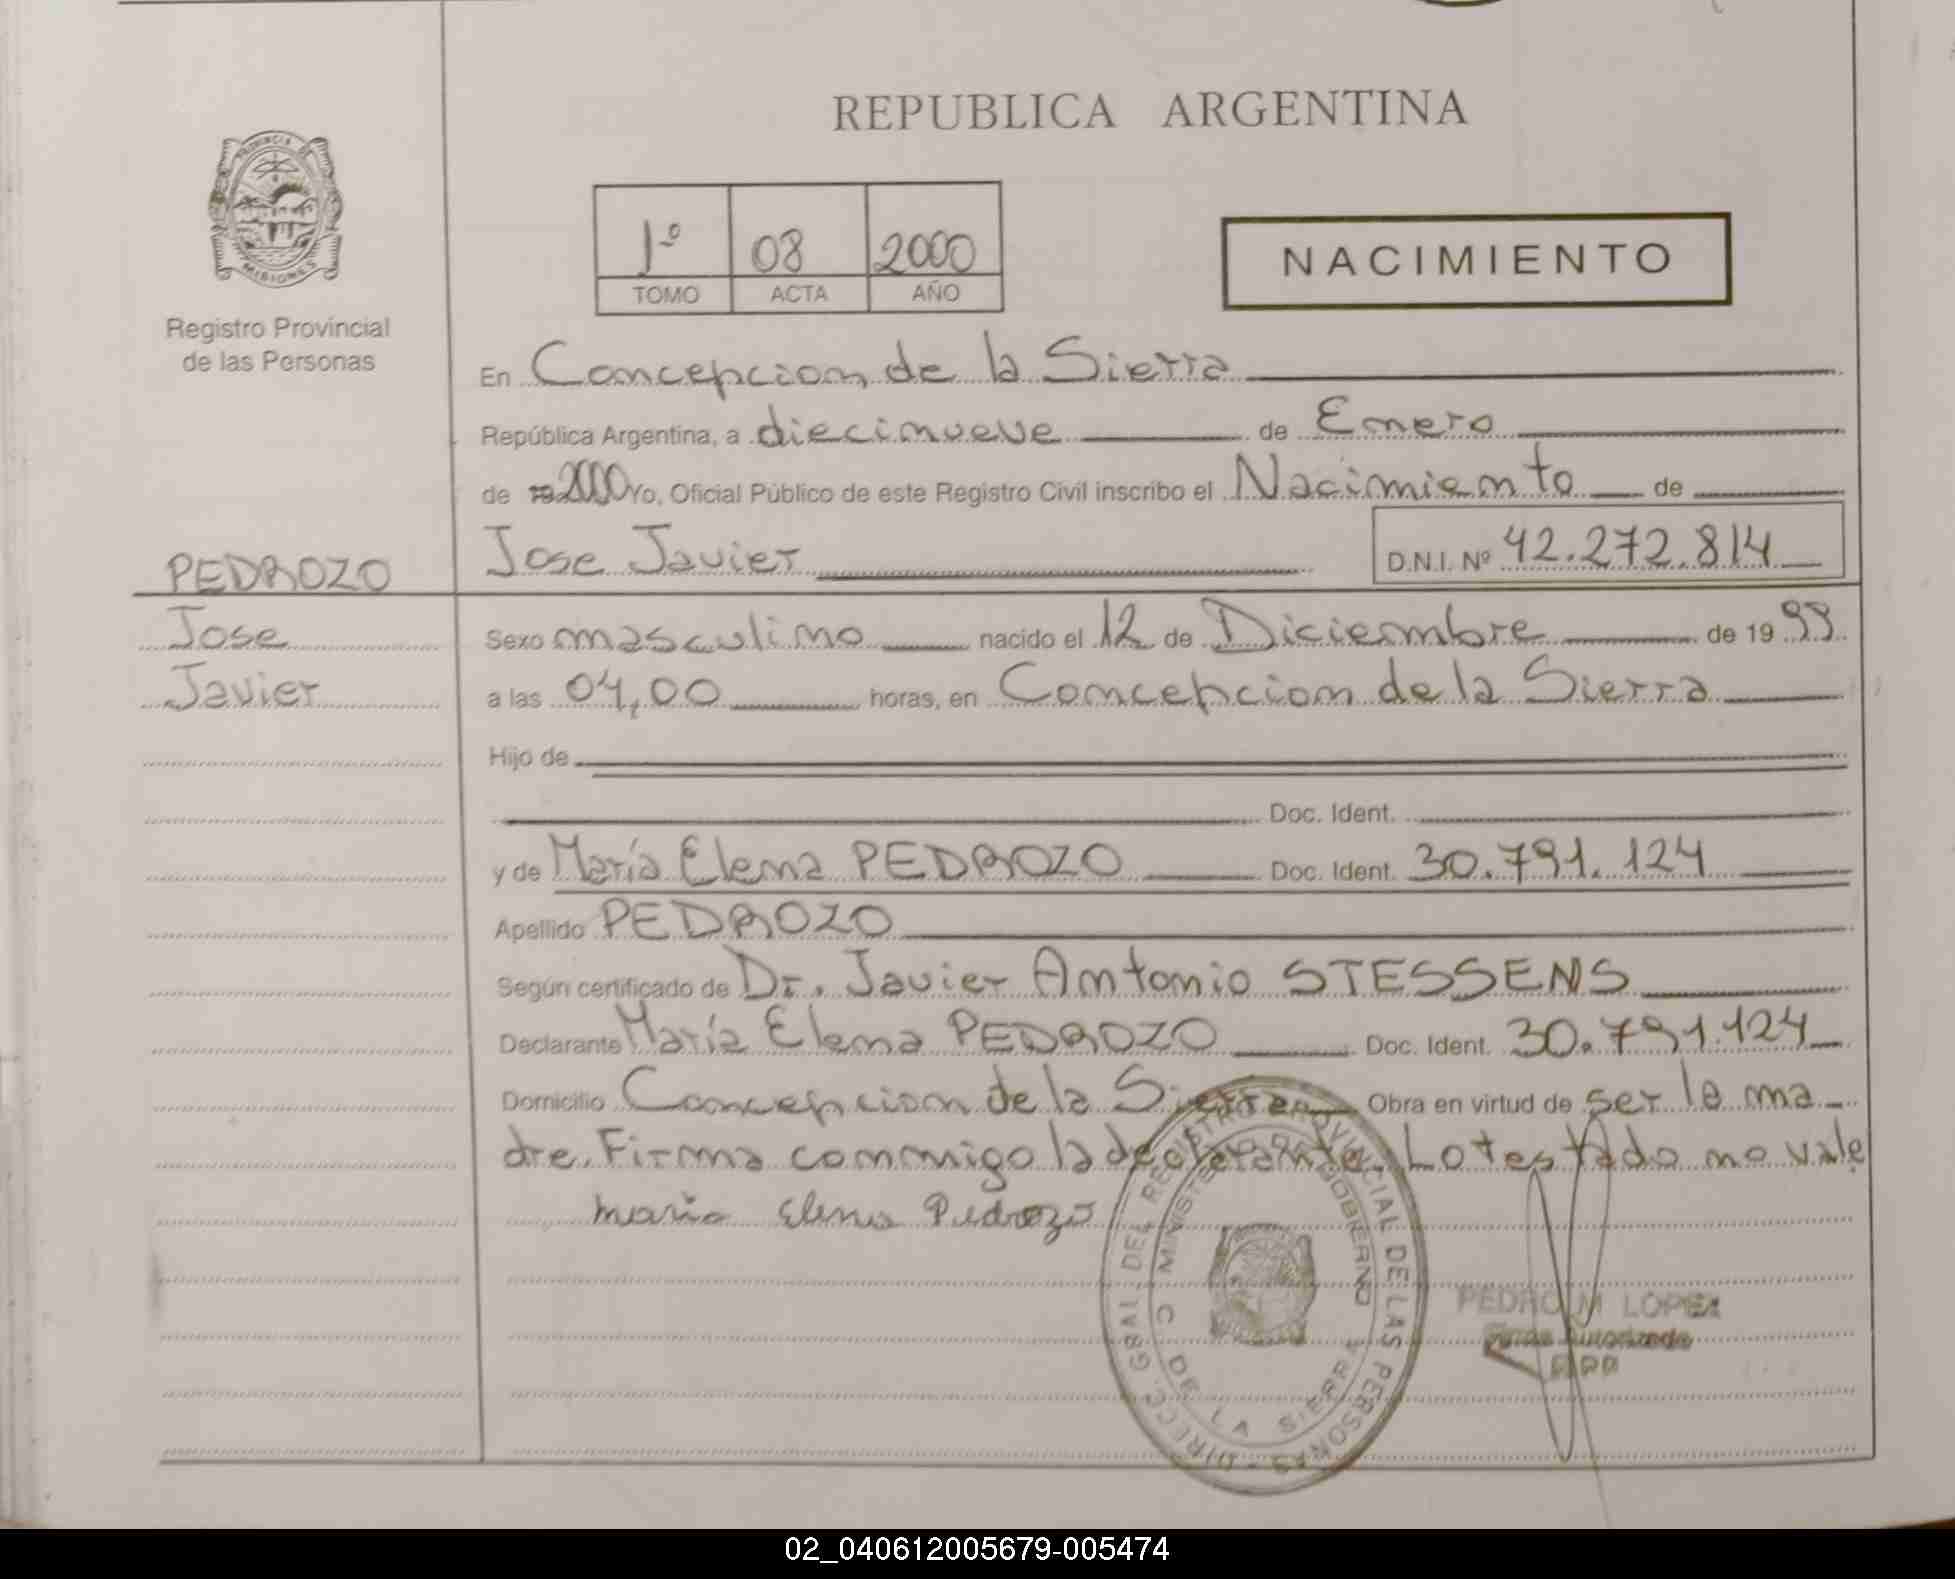 REPUBLICA ARGENTINA
PROVINCIA DE
MISIONES
Registro Provincial
de las Personas
1º 08 2000
TOMO ACTA AÑO
NACIMIENTO
En Concepcion de la Sierra
República Argentina, a diecinueve de Enero
de 19 2000 Yo, Oficial Público de este Registro Civil inscribo el Nacimiento de
PEDROZO
Jose
Javier
Jose Javier D.N.I. Nº 42.272.814
Sexo masculino nacido el 12 de Diciembre de 19 99
a las 04,00 horas, en Concepcion de la Sierra
Hijo de
Doc. Ident.
y de María Elena PEDROZO Doc. Ident. 30.791.124
Apellido PEDROZO
Según certificado de Dr. Javier Antonio STESSENS
Declarante María Elena PEDROZO Doc. Ident. 30.791.124
Domicilio Concepcion de la Sierra Obra en virtud de ser la ma
dre. Firma conmigo la declarante. Lo testado no vale
Maria Elena Pedrozo
DIRECC. GRAL. DEL REGISTRO PROVINCIAL DE LAS PERSONAS
MINISTERIO GOBIERNO
C DE LA SIERRA
PEDRO M LOPEZ
Firma Autorizada
RPP
02_040612005679-005474